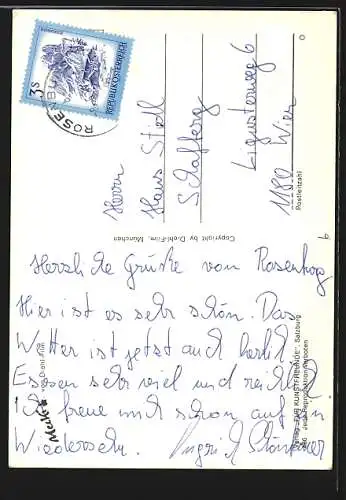 3 S
REPUBLIK ÖSTERREICH
ROSENBU
Herrn
Hans Stedl
Schafberg
Ligusterweg 6
1180 Wien
Postleitzahl
Copyright by Diehl-Film, München
Herzliche Grüße von Rosenburg
Hier ist es sehr schön. Das
Wetter ist jetzt auch herrl
Essen sehr viel und reichl
Ich freue mich schon auf ein
Wiedersehn. Ingrid
"FÜR KUNSTFREUNDE", Salzburg
Mecki